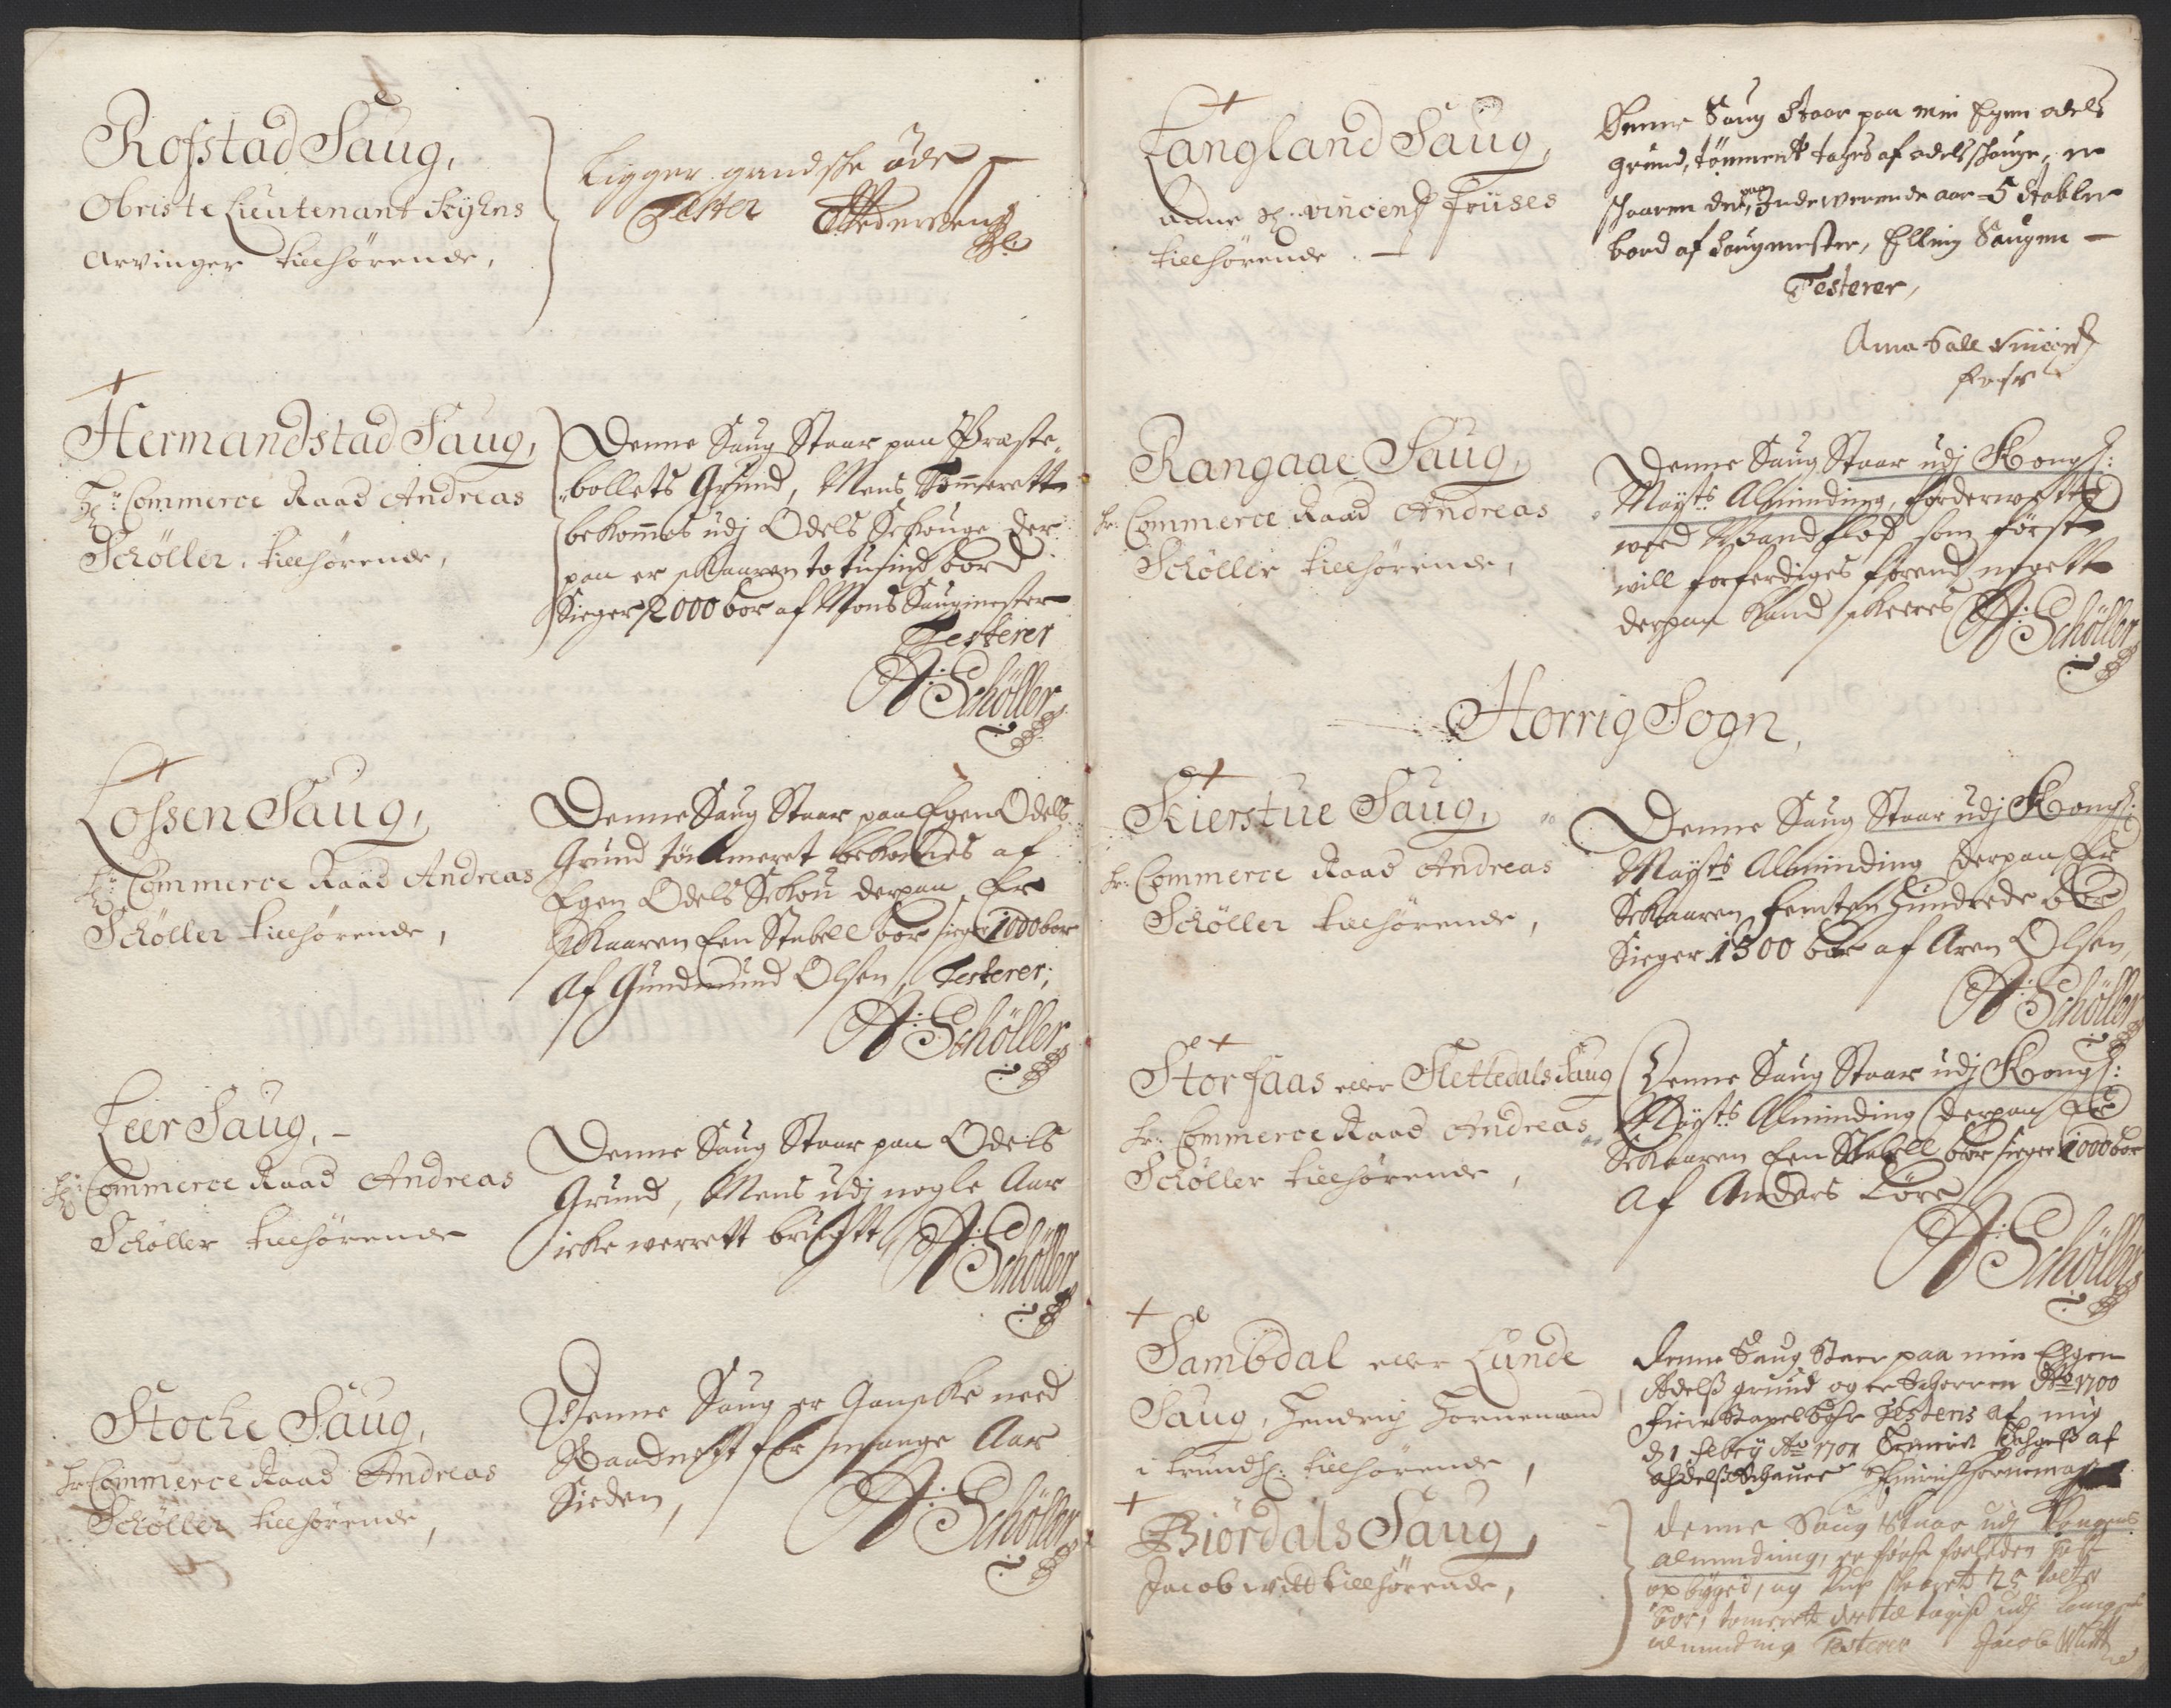 Rosstad Saug,
Obriste Lieutenant
Arvinger tillhørende,
Ligger gandske öde
Tester Pedersen
Hermandstad Saug,
Hr: Commerce Raad Andreas
Schøller, tillhørende,
Denne Saug Staar paa Præste-
bollets Grund, Mens Tömmerett
bekommes udj Odels Skouge der-
paa er skaaren to tusind bord
Siger 2000 bor af Mons Saugmester
Testerer
A: Schöller
Lossen Saug,
Hr: Commerce Raad Andreas
Schøller tillhørende,
Denne Saug Staar paa Egen Odels
Grund tömmeret bekomes af
Egen Odels Skou derpaa Er
Skaaren Een Stabell bor siger 1000 bor
Af Gundmund Olsen, Testerer,
A: Schöller
Leer Saug,
Hr: Commerce Raad Andreas
Schøller tillhørende
Denne Saug Staar paa Odels
Grund, Mens udj nogle Aar
icke werrett brugtt
A: Schöller
Stoche Saug,
Hr: Commerce Raad Andreas
Schøller tillhørende,
Denne Saug er Ganske need
Raadnett for mange Aar
Sieden,
A: Schöller
Langland Saug,
Anne Sl: Vincents Fuses
tillhørende
Denne Saug Staar paa min Egen odels
grund, tömmerit tages af odelsschouge, er
schaaren der paa Indewerende aar 5 stabler
bord af Saugmester, Elling Saugen
Testerer,
Anna Sall Vincents
Rangaae Saug,
Hr: Commerce Raad Andreas
Schøller tillhørende,
Denne Saug Staar udj Kongl:
Mayts Alminding, forderwett
weed Wandflod som først
will forferdiges forend nogett
derpaa kand skeeres
A: Schöller
Horrig Sogn,
Kierstue Saug,
Hr: Commerce Raad Andreas
Schøller tillhørende,
Denne Saug Staar udj Kongl:
Mayts Alminding derpaa Er
Skaaren femten Hundrede bor
Siger 1500 bor af Aren Olsen,
A: Schöller
Storfaas eller Slettedals Saug
Hr: Commerce Raad Andreas
Schøller tillhørende,
Denne Saug Staar udj Kongl:
Mayts Alminding derpaa Er
Skaaren Een Stabell bor siger 1000 bor
Af Anders Löre
A: Schöller
Sambdal eller Lunde
Saug, Hendrich Hornemand
i Trundh: tillhørende,
denne Saug Staar paa min Egen
Adelss grund og er Schorren Ao 1700
fire Stapel Testeris af mig
d 1 Ao 1701
af
Biördals Saug,
Jacob Witt tillhørende,
denne Saug Staar udj Kongens
alminding, er först forleden
opbyged, og kun skaaret 25 tolfter
bor, tömerett dertil tagis udj Kongens
alminding Testerer Jacob Witt